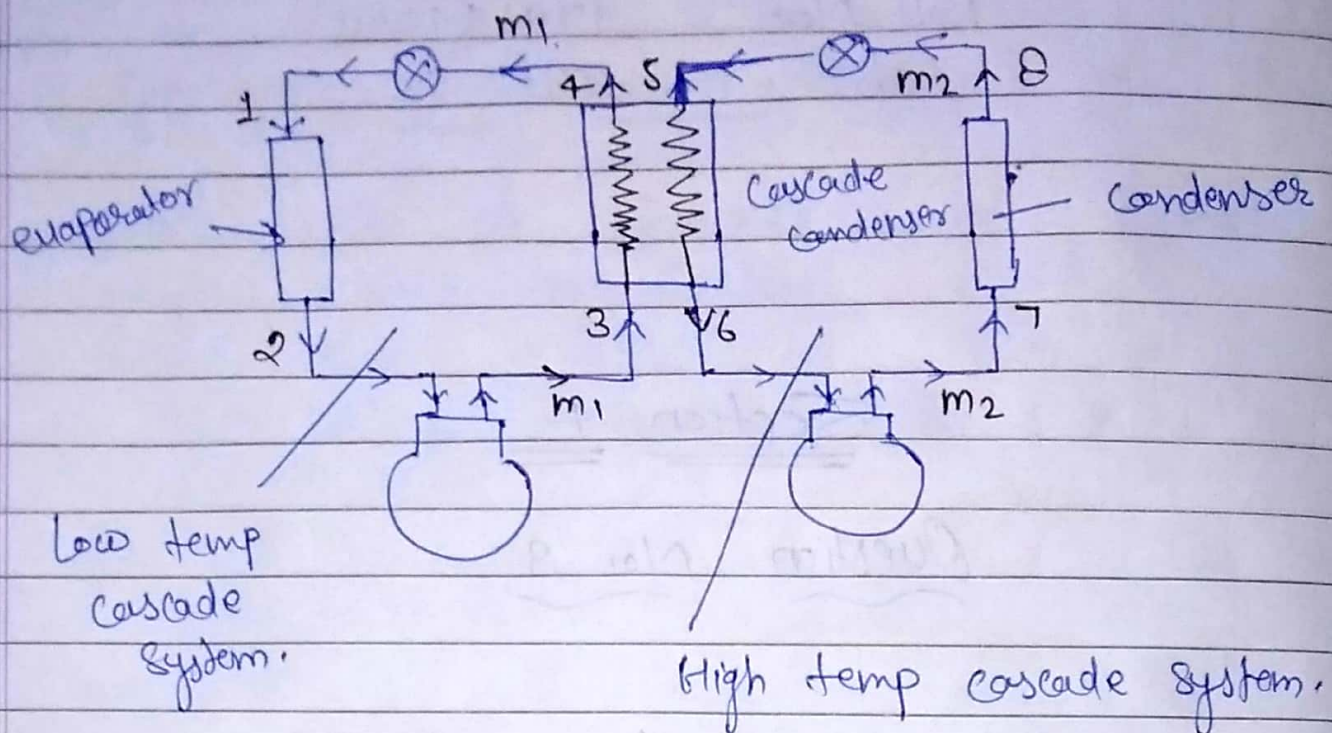 m1
4 5
m2 8
1
evaporator
Cascade
condenser
Condenser
2
3
6
7
m1
m2
Low temp
cascade
system.
High temp cascade system.